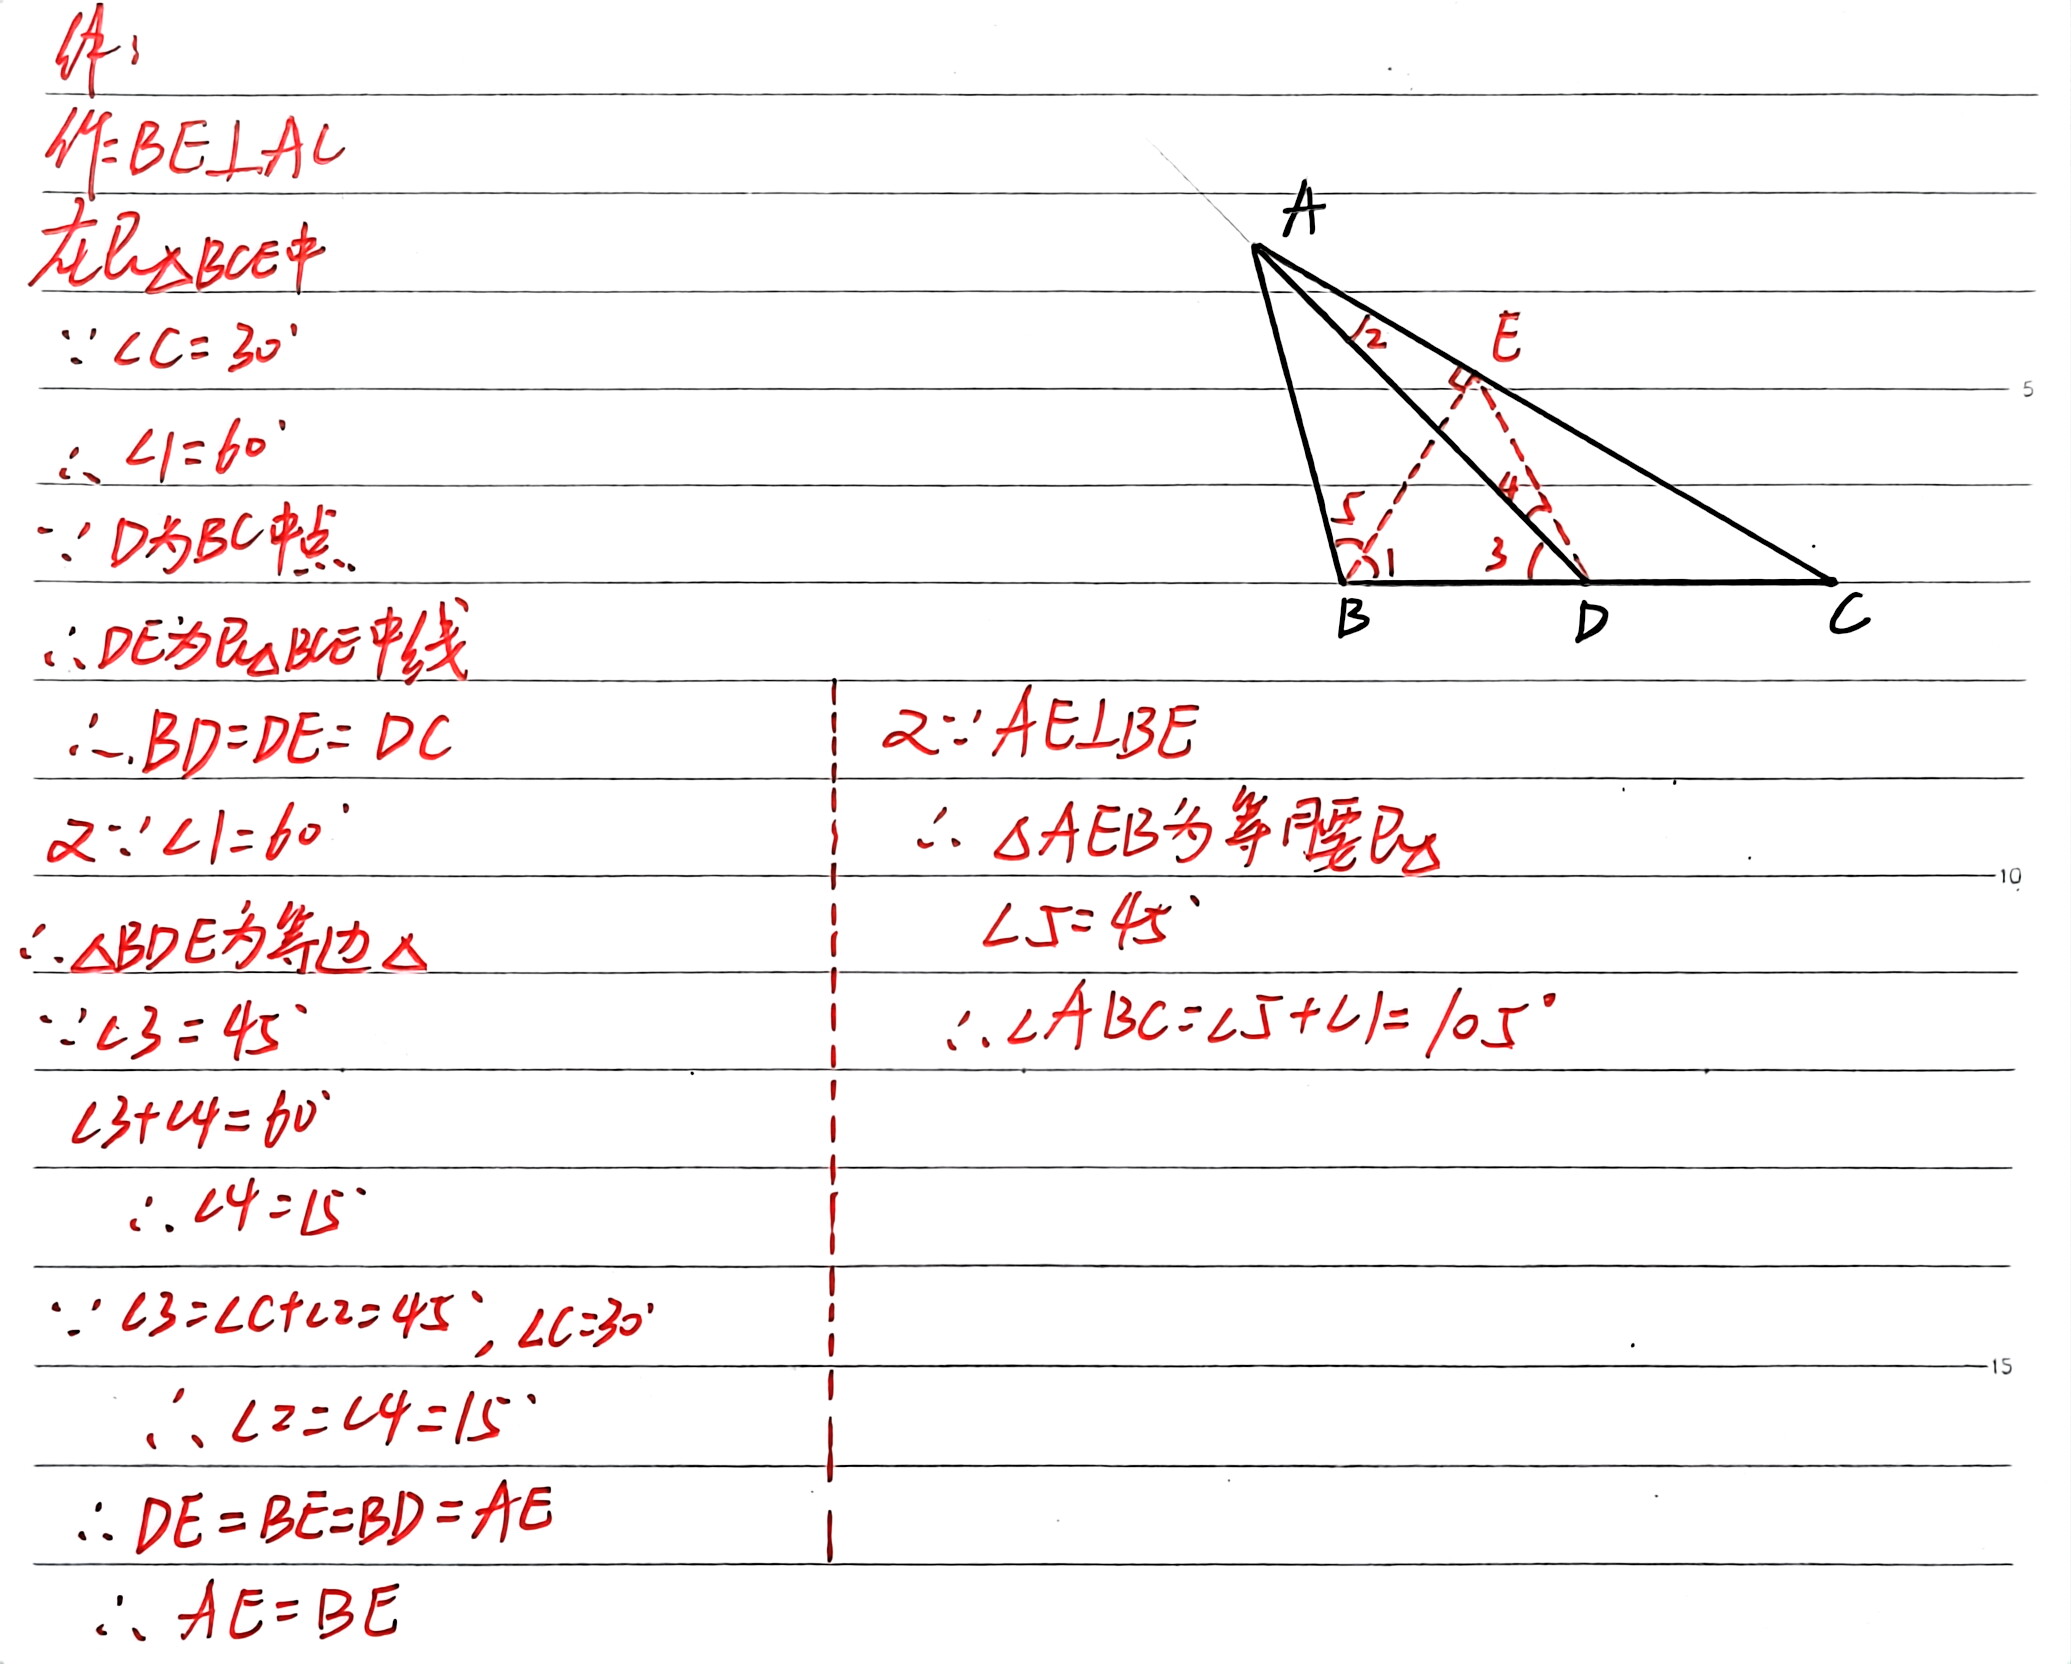 解:
作BE⊥AC
在Rt△BCE中
∵∠C=30°
∴∠1=60°
∵D为BC中点
∴DE为Rt△BCE中线
∴BD=DE=DC
又∵∠1=60°
∴△BDE为等边△
∵∠3=45°
∠3+∠4=60°
∴∠4=15°
∵∠3=∠C+∠2=45°,∠C=30°
∴∠2=∠4=15°
∴DE=BE=BD=AE
∴AE=BE
又∵AE⊥BE
∴△AEB为等腰Rt△
∠5=45°
∴∠ABC=∠5+∠1=105°
A
2
E
4
5
1
3
B
D
C
5
10
15